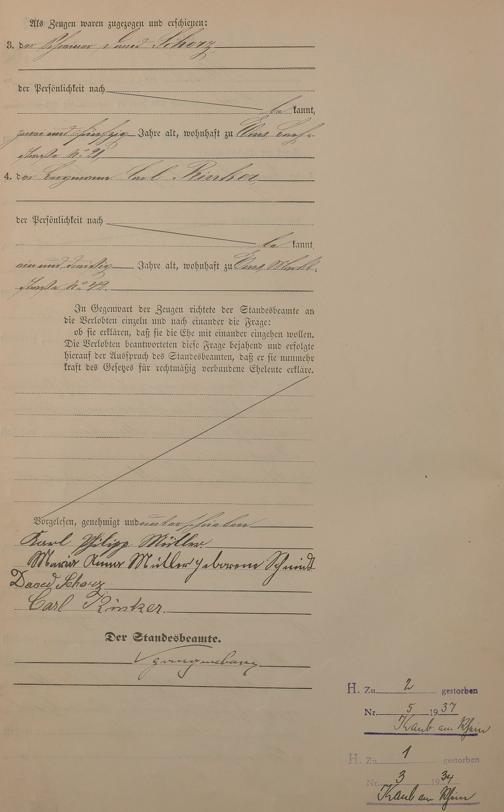 Als Zeugen waren zugezogen und erschienen:
3. der David Schorz
der Persönlichkeit nach
be kannt,
zwei und fünfzig Jahre alt, wohnhaft zu Ems
straße No 21,
4. der Bergmann Carl Rinker
der Persönlichkeit nach
be kannt,
ein und dreißig Jahre alt, wohnhaft zu Ems
straße No
In Gegenwart der Zeugen richtete der Standesbeamte an
die Verlobten einzeln und nach einander die Frage:
ob sie erklären, daß sie die Ehe mit einander eingehen wollen.
Die Verlobten beantworteten diese Frage bejahend und erfolgte
hierauf der Ausspruch des Standesbeamten, daß er sie nunmehr
kraft des Gesetzes für rechtmäßig verbundene Eheleute erkläre.
Vorgelesen, genehmigt und unterschrieben
Karl Philipp Müller
Maria Anna Müller geborene Schmidt
David Schorz
Carl Rinker.
Der Standesbeamte.
H. Zu 2 gestorben
Nr. 5 1937
Kaub am Rhein
H. Zu 1 gestorben
Nr. 3 1934
Kaub am Rhein